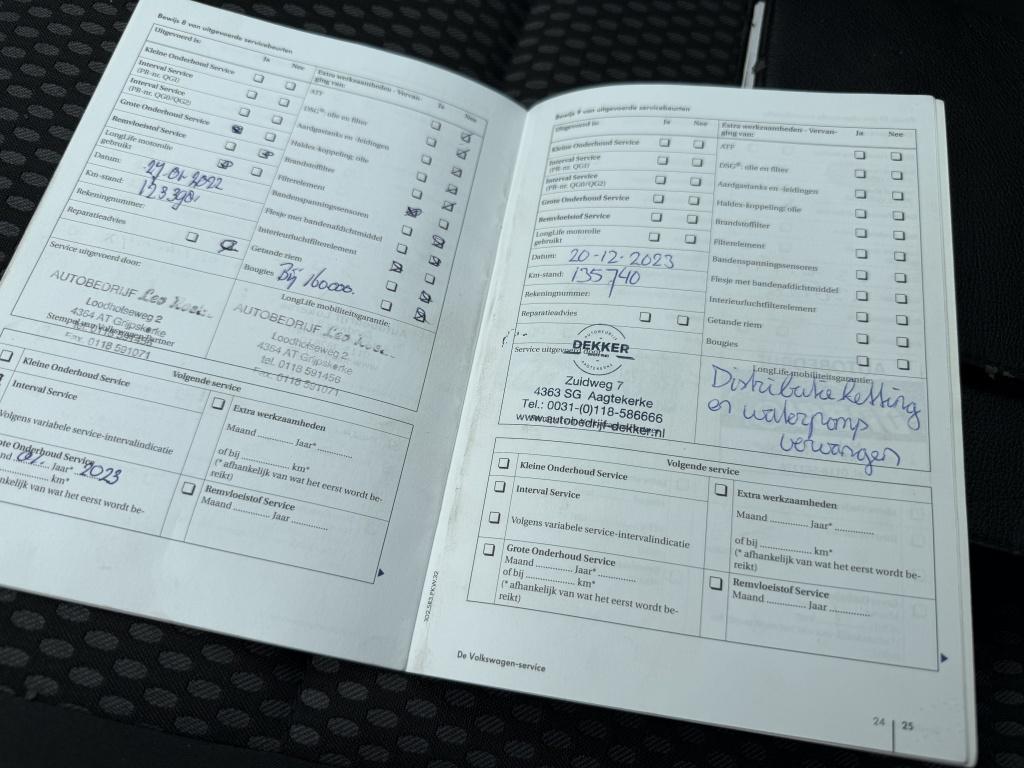 Bewijs 8 van uitgevoerde servicebeurten
Uitgevoerd is:
Ja Nee
Kleine Onderhoud Service
Interval Service
(PR-nr. QG1)
Interval Service
(PR-nr. QG0/QG2)
Grote Onderhoud Service
Remvloeistof Service
LongLife motorolie
gebruikt
Datum: 27-01-2022
Km-stand: 123390
Rekeningnummer:
Reparatieadvies
Service uitgevoerd door:
AUTOBEDRIJF
Loodholseweg 2
4364 AT Grijpskerke
Stempel van Volkswagen Partner
Tel. 0118 591456
Fax. 0118 591071
Extra werkzaamheden - Vervan-
ging van:
Ja Nee
ATF
DSG®: olie en filter
Aardgastanks en -leidingen
Haldex-koppeling: olie
Brandstoffilter
Filterelement
Bandenspanningssensoren
Flesje met bandenafdichtmiddel
Interieurluchtfilterelement
Getande riem
Bij 160000.
Bougies
LongLife mobiliteitsgarantie:
AUTOBEDRIJF
Loodholseweg 2
4364 AT Grijpskerke
tel. 0118 591456
Fax. 0118 591071
Volgende service
Kleine Onderhoud Service
Interval Service
Volgens variabele service-intervalindicatie
Grote Onderhoud Service
Jaar* 2023
km*
kelijk van wat het eerst wordt be-
Extra werkzaamheden
Maand ............. Jaar* .............
of bij .................. km*
(* afhankelijk van wat het eerst wordt be-
reikt)
Remvloeistof Service
Maand ............. Jaar .............
Bewijs 9 van uitgevoerde servicebeurten
Uitgevoerd is:
Ja Nee
Kleine Onderhoud Service
Interval Service
(PR-nr. QG1)
Interval Service
(PR-nr. QG0/QG2)
Grote Onderhoud Service
Remvloeistof Service
LongLife motorolie
gebruikt
Datum: 20-12-2023
Km-stand: 135740
Rekeningnummer:
Reparatieadvies
Service uitgevoerd door:
AUTOBEDRIJF
DEKKER
AAGTEKERKE
Zuidweg 7
4363 SG Aagtekerke
Tel.: 0031-(0)118-586666
www.autobedrijf-dekker.nl
Extra werkzaamheden - Vervan-
ging van:
Ja Nee
ATF
DSG®: olie en filter
Aardgastanks en -leidingen
Haldex-koppeling: olie
Brandstoffilter
Filterelement
Bandenspanningssensoren
Flesje met bandenafdichtmiddel
Interieurluchtfilterelement
Getande riem
Bougies
LongLife mobiliteitsgarantie:
Distributie ketting
en waterpomp
vervangen
Volgende service
Kleine Onderhoud Service
Interval Service
Volgens variabele service-intervalindicatie
Grote Onderhoud Service
Maand ............. Jaar* .............
of bij .................. km*
(* afhankelijk van wat het eerst wordt be-
reikt)
Extra werkzaamheden
Maand ............. Jaar* .............
of bij .................. km*
(* afhankelijk van wat het eerst wordt be-
reikt)
Remvloeistof Service
Maand ............. Jaar .............
302.5R3.PKW.32
De Volkswagen-service
24 | 25